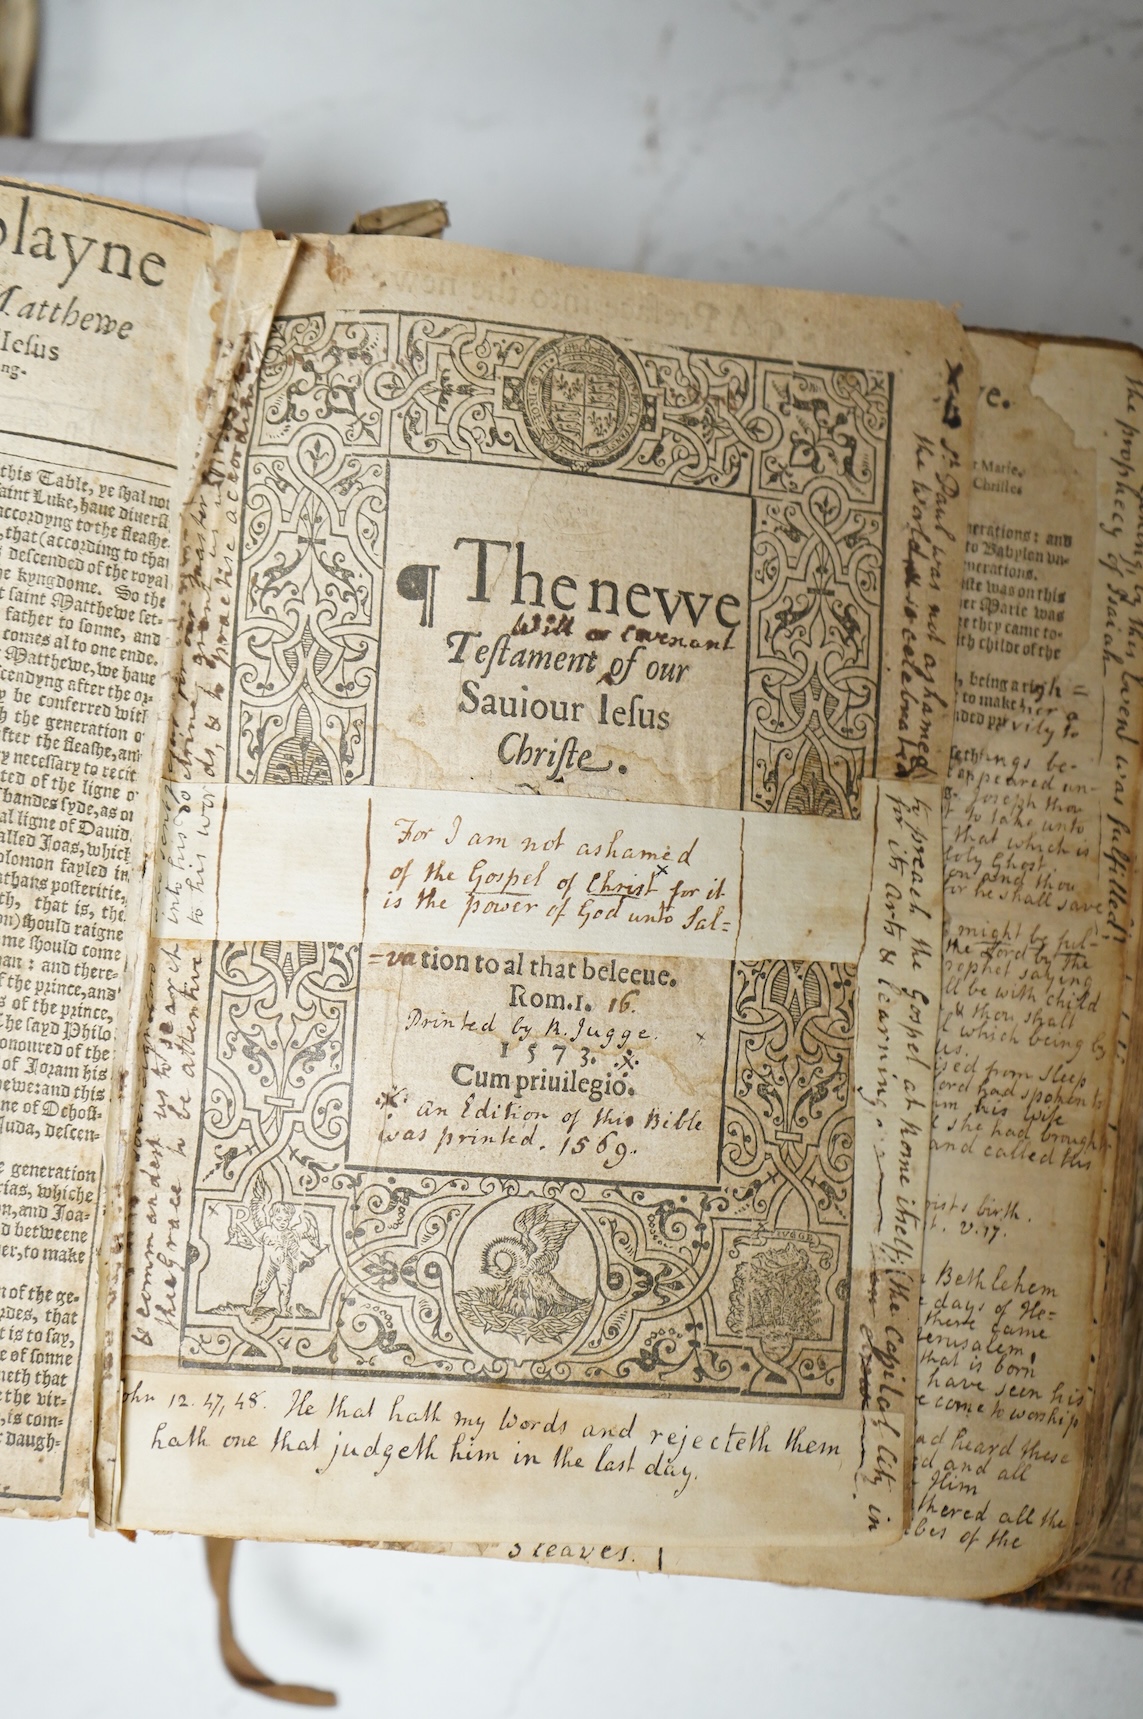 playne
Matthewe
Iesus
ng.
this Table, ye shal not
saint Luke, haue diuers
accordyng to the fleashe.
, that (according to tha
descended of the royal
kyngdome. So the
saint Matthewe set-
father to sonne, and
comes al to one ende.
Matthewe, we haue
scendyng after the or-
y be conferred with
the generation o
fter the fleashe, an
y necessary to recit
ted of the ligne o
bandes syde, as of
al ligne of Dauid,
alled Joas, which
olomon fayled in
athans posteritie,
th, that is, the
)should raigne
me should come
an: and there-
f the prince, and
s of the prince,
he sayd Philo
onoured of the
of Joram his
ewe: and this
Juda, descen-
e generation
ias, whiche
n, and Joa-
d betweene
er, to make
n of the ge-
des, that
t is to say,
e of sonne
neth that
the vir-
, is com-
daugh-
& commandest us to search into his
thee Grace to be attentive to his words, & to practise according
¶ The newe
Will or Covenant
Testament of our
Sauiour Iesus
Christe.
For I am not ashamed
of the Gospel of Christ x for it
is the power of God unto Sal=
=vation to al that beleeue.
Rom.1. 16.
Printed by R. Jugge. x
1573.
Cum priuilegio.
an Edition of this Bible
was printed. 1569.
R
John 12. 47, 48. He that hath my Words and rejecteth them,
hath one that judgeth him in the last day.
3 leaves.
St. Paul was not ashamed to preach the Gospel at Rome itself, the Capital City in
the World & so celebrated for its Arts & Learning.
ye.
t Marie.
Christes
nerations: and
to Babylon vn-
nerations.
iste was on this
er Marie was
e they came to-
th childe of the
, being a righ=
to make her a
nded privily to
these things be-
appeared un-
Joseph thou
t to take unto
that which is
holy Ghost.
Son and thou
for he shall save
might be ful-
the Lord by the
rophet saying
ll be with child
& thou shalt
which being by
us.
ised from sleep
ord had spoken to
im his wife
she had brought
and called his
rists birth.
t. v.17.
Bethlehem
days of He=
there came
Jerusalem,
that is born
have seen his
e come to worship
ad heard these
d and all
Him
thered all the
ibes of the
the prophecy of Isaiah
even was fulfilled